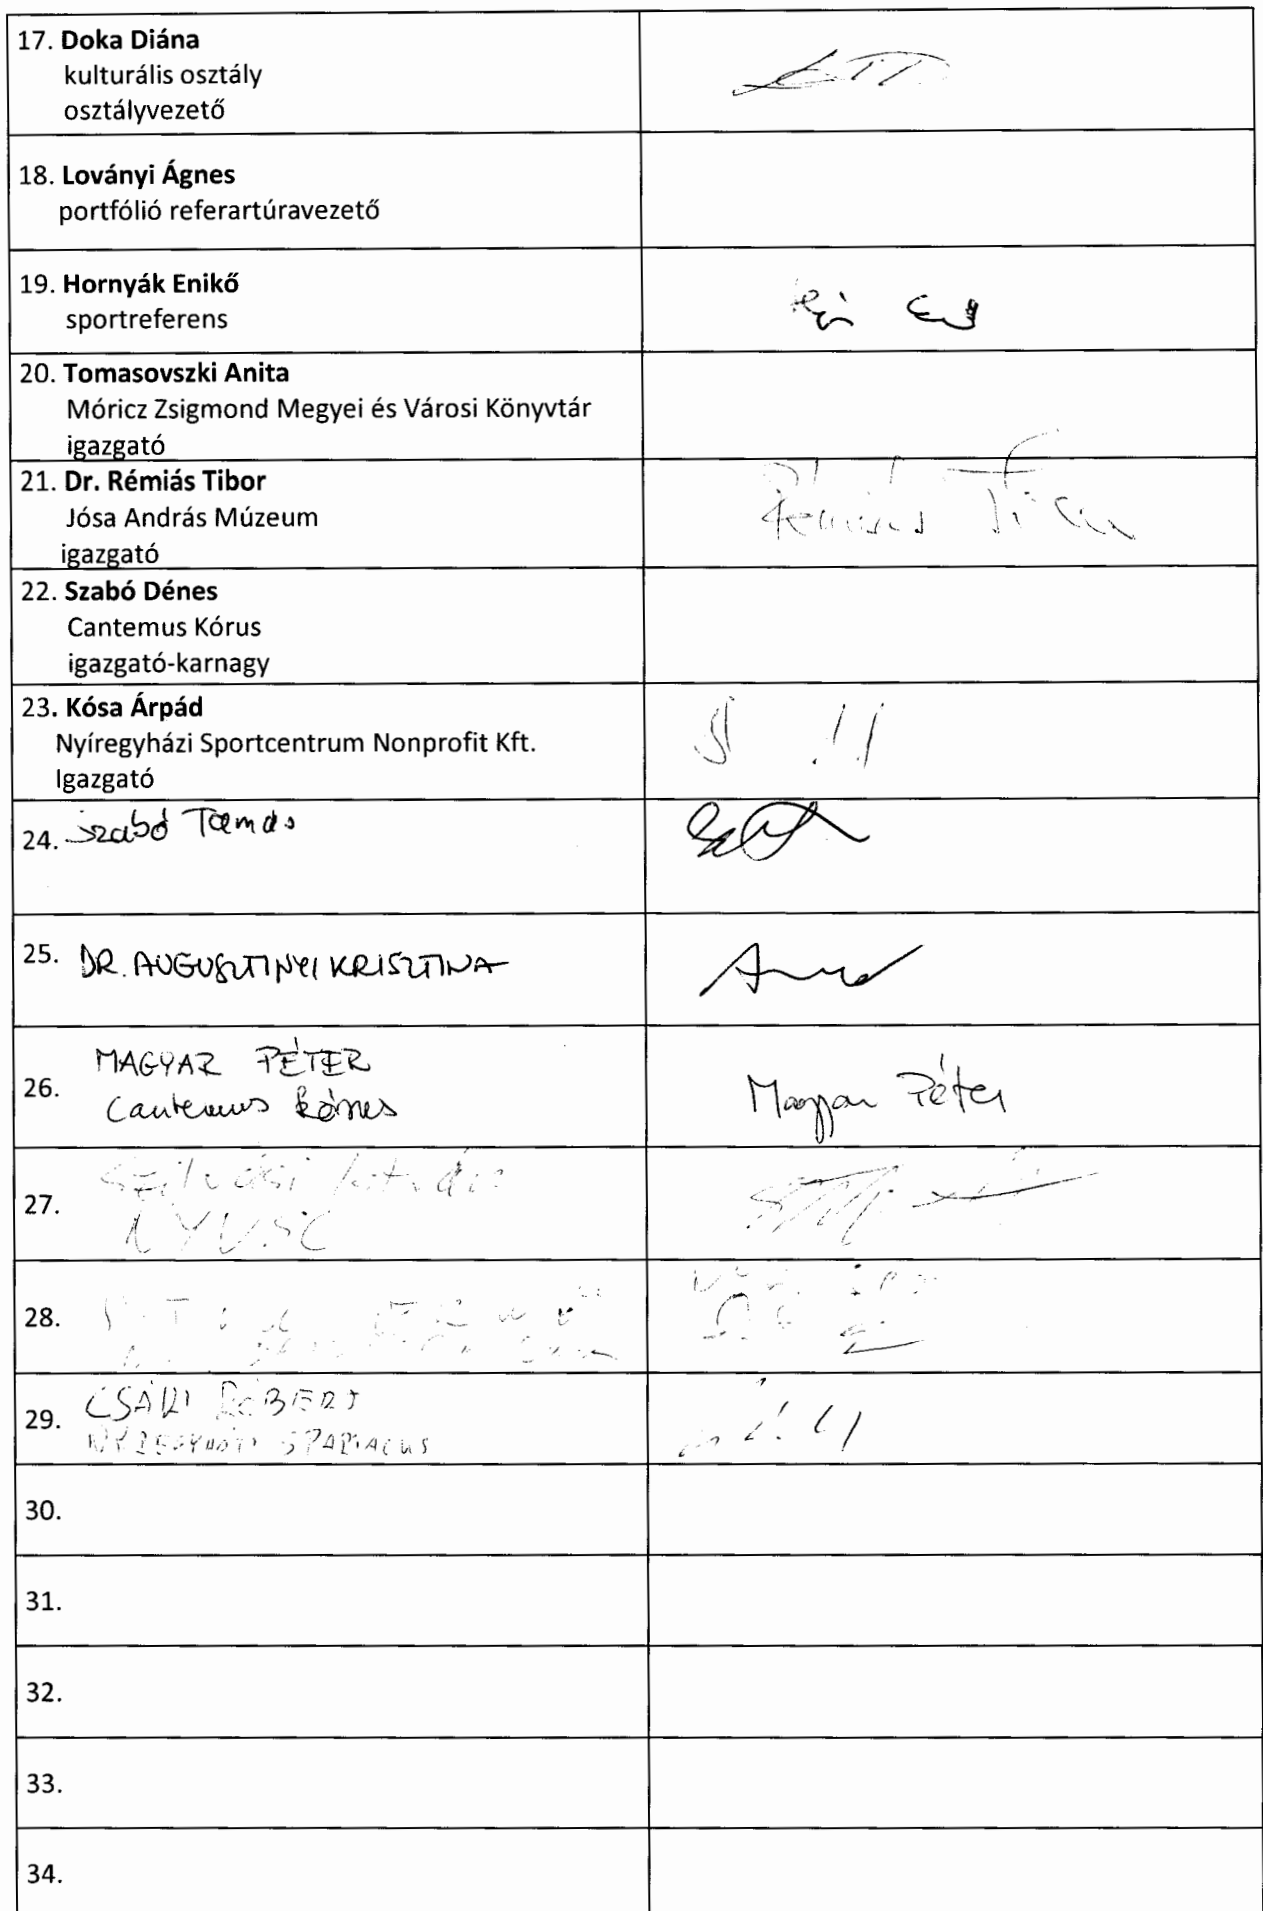 17. Doka Diána
kulturális osztály
osztályvezető
18. Loványi Ágnes
portfólió referartúravezető
19. Hornyák Enikő
sportreferens
20. Tomasovszki Anita
Móricz Zsigmond Megyei és Városi Könyvtár
igazgató
21. Dr. Rémiás Tibor
Jósa András Múzeum
igazgató
Rémiás Tibor
22. Szabó Dénes
Cantemus Kórus
igazgató-karnagy
23. Kósa Árpád
Nyíregyházi Sportcentrum Nonprofit Kft.
Igazgató
24. Szabó Tamás
25. DR. AUGUSZTINYI KRISZTINA
26. MAGYAR PÉTER
Cantemus Kórus
Magyar Péter
27. Szilvási István
NYVSC
28.
29. CSÁKI RÓBERT
NYÍREGYHÁZI SPARTACUS
30.
31.
32.
33.
34.